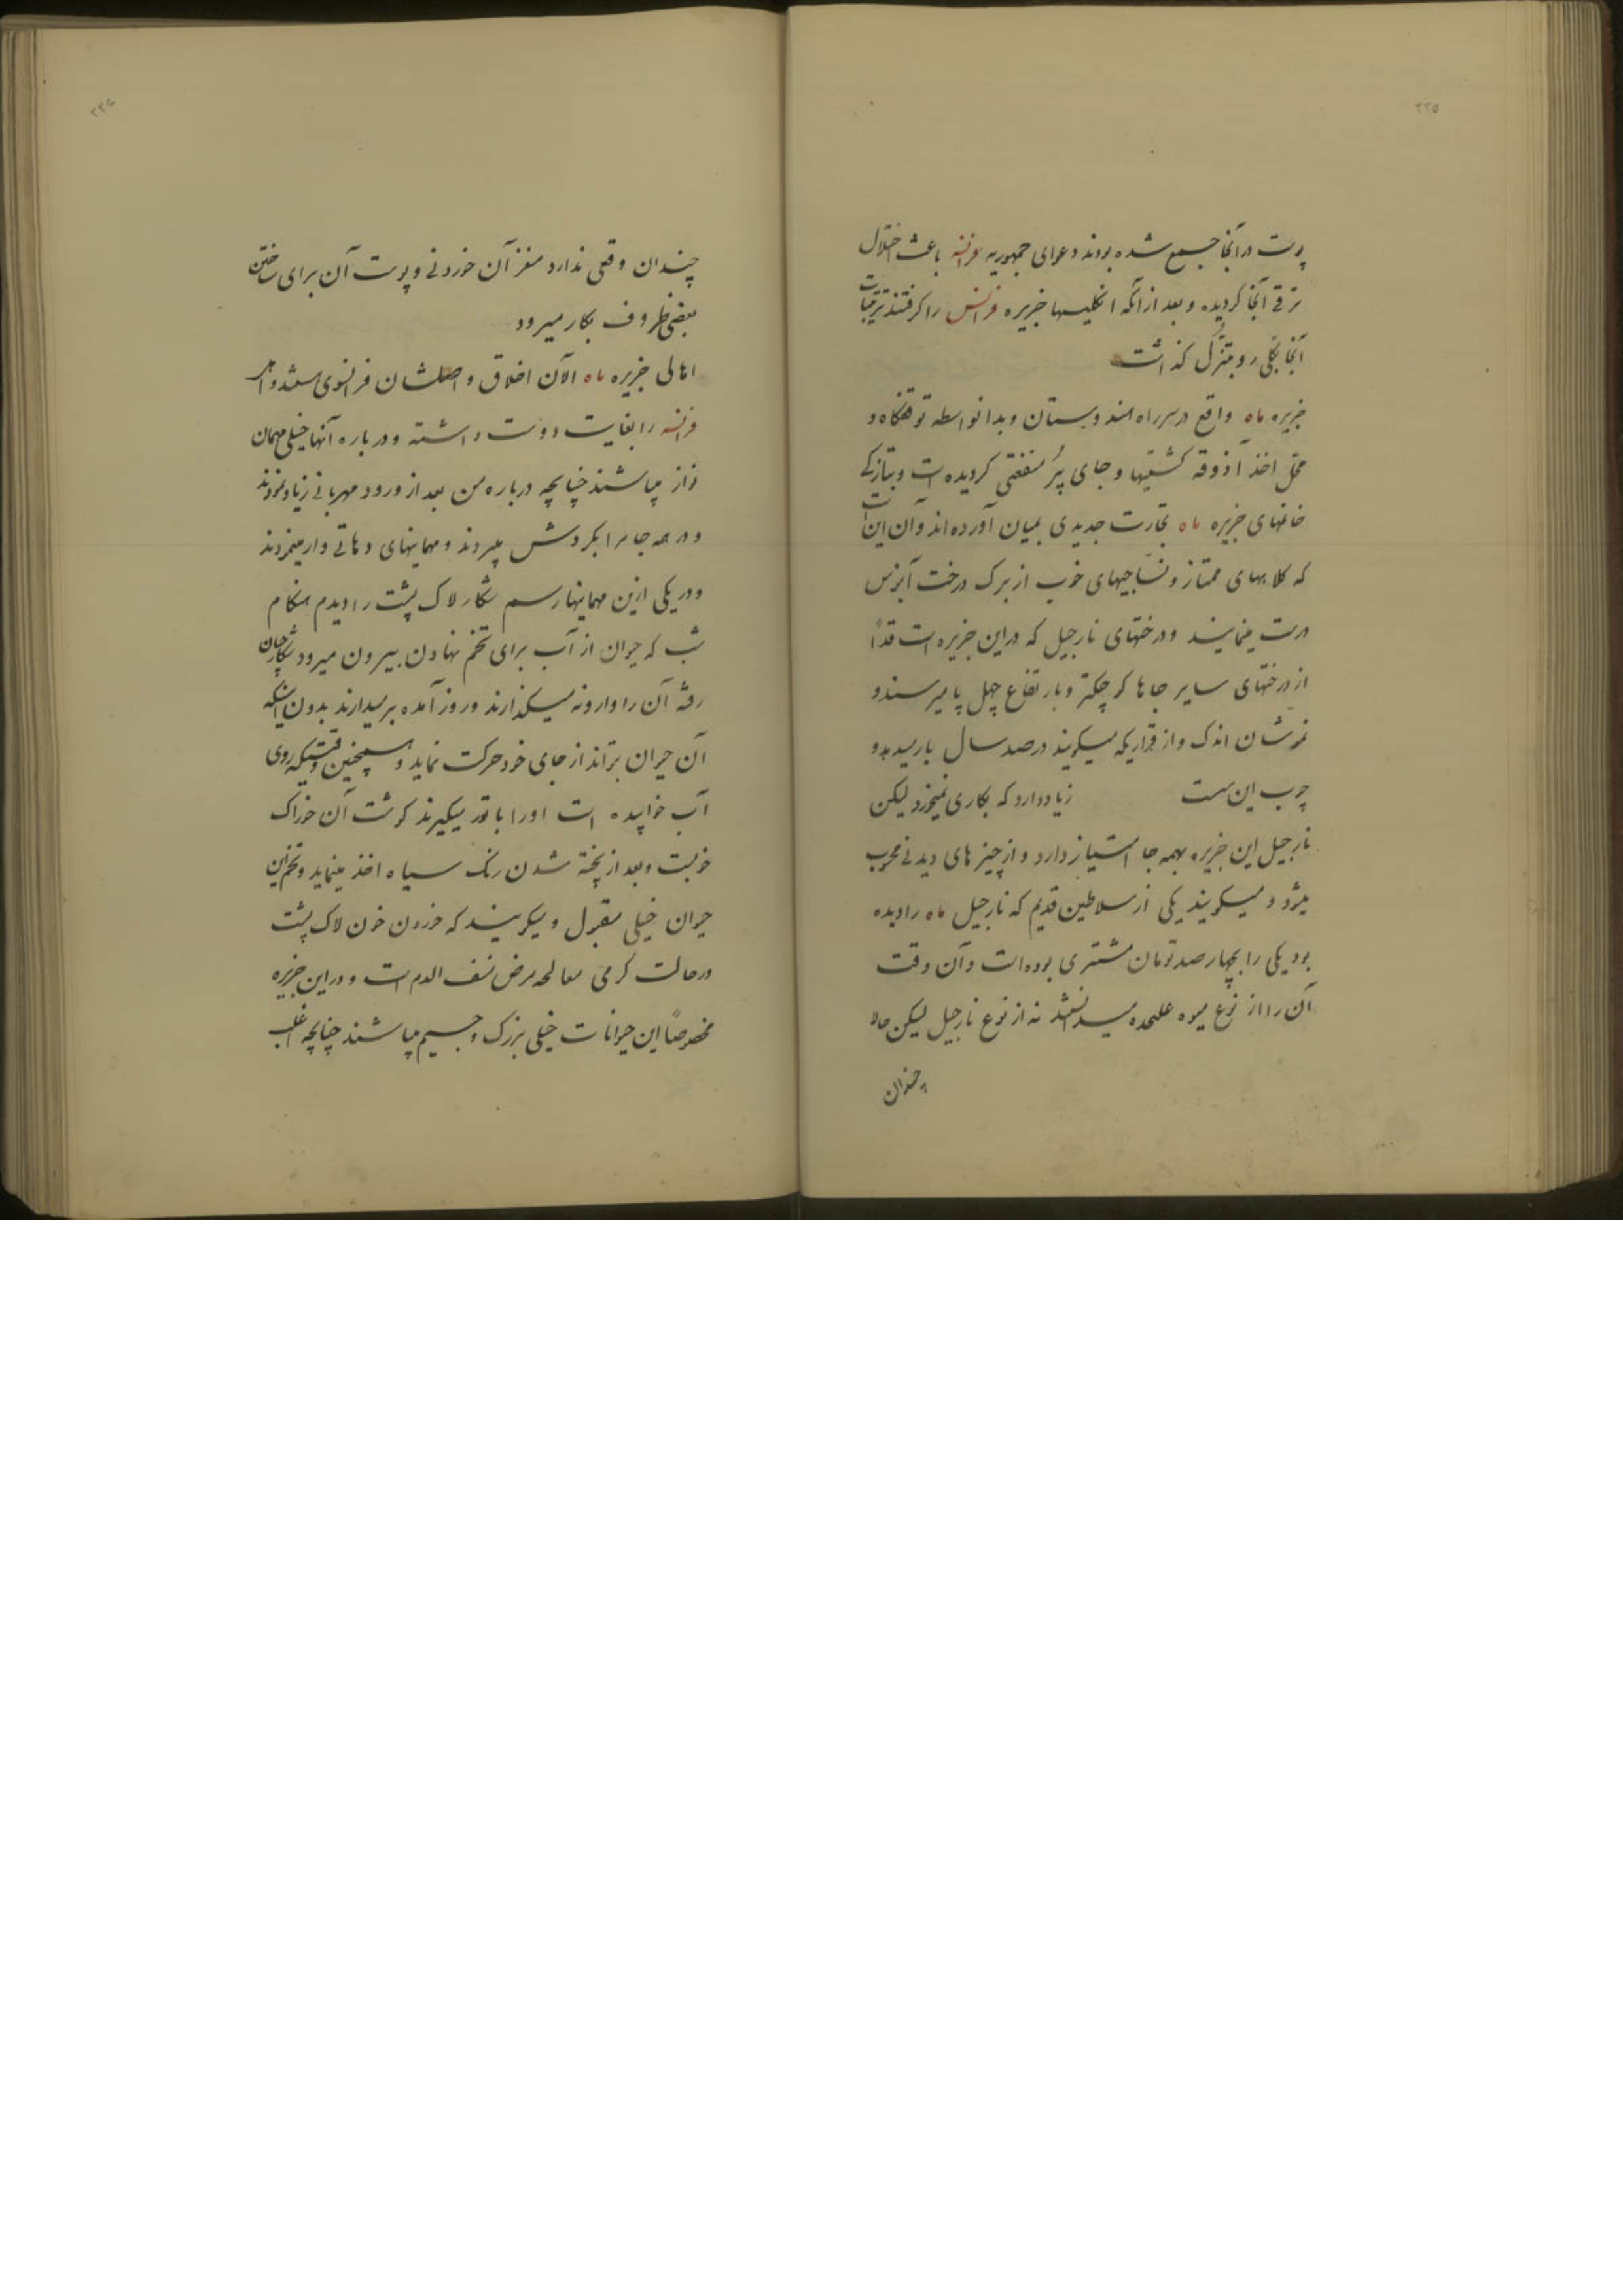 ۲۲۵
پوست در آنجا جمع شده بودند دعوای جمهوریه فرانسه باعث اختلال
ترقی آنجا کردیده و بعد از آنکه انکلیسها جزیره فرانس را کرفتند ترقیات
آنجا بکلی رو بتنزل کذاشت
جزیره ماه واقع در سر راه هندوستان و بدانواسطه توقفکاه و
محل اخذ آذوقه کشتیها و جای پر منفعتی کردیده است و بتازکی
خانمهای جزیره ماه تجارت جدیدی بمیان آورده‌اند و آن این است
که کلاههای ممتاز و نساجیهای خوب از برک درخت
درست مینمایند و درختهای نارجیل که در این جزیره است قدا
از درختهای سایر جاها کوچکتر و بارتفاع چهل پا میرسند و
نموشان اندک و از قراریکه میکویند در صد سال بار میدهد و
چوب این ست زیاد دارد که بکاری نمیخورد لیکن
نارجیل این جزیره بهمه جا امتیاز دارد و از چیزهای دیدنی محسوب
میشود و میکویند یکی از سلاطین قدیم که نارجیل ماه را دیده
بود یکی را بچهار صد تومان مشتری بوده است و آن وقت
آن را از نوع میوه علیحده میدانستند نه از نوع نارجیل لیکن حالا
چندان
۲۲۶
چندان وقعی ندارد مغز آن خوردنی و پوست آن برای ساختن
بعضی ظروف بکار میرود
اهالی جزیره ماه الآن اخلاق و اصلشان فرانسوی هستند و اهل
فرانسه را بغایت دوست داشته و درباره آنها خیلی مهمان
نواز میباشند چنانچه درباره من بعد از ورود مهربانی زیاد نمودند
و در همه جا مرا بکردش میبردند و مهمانیهای دهاتی وار مینمودند
و در یکی ازین مهمانیها رسم شکار لاک پشت را دیدم هنکام
شب که حیوان از آب برای تخم نهادن بیرون میرود شکارچیان
رفته آن را وارونه میکذارند و روز آمده برمیدارند بدون اینکه
آن حیوان بتواند از جای خود حرکت نماید و همچنین وقتیکه روی
آب خوابیده است او را با تور میکیرند کوشت آن خوراک
خوبست و بعد از پخته شدن رنک سیاه اخذ مینماید و تخم این
حیوان خیلی مقبول و میکویند که خوردن خون لاک پشت
در حالت کرمی معالجه مرض نسف الدم است و در این جزیره
مخصوصا این حیوانات خیلی بزرک و جسیم میباشند چنانچه اغلب